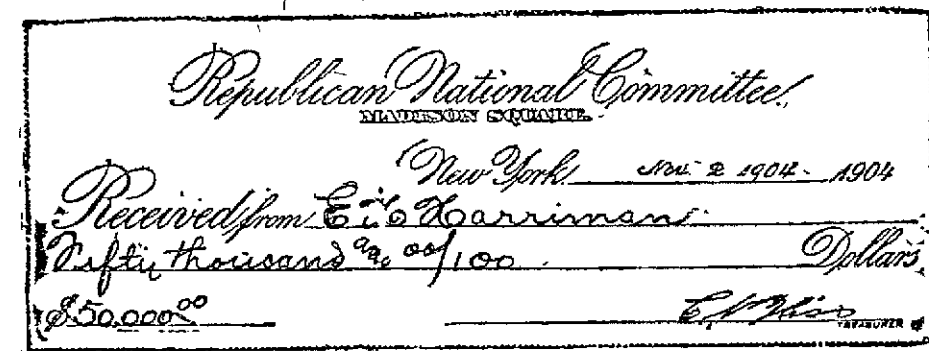 Republican National Committee.
MADISON SQUARE.
New York Nov. 2 1904 - 1904
Received from E. H. Harriman
Fifty thousand and 00/100 Dollars
$50,000.00 C N Bliss
TREASURER